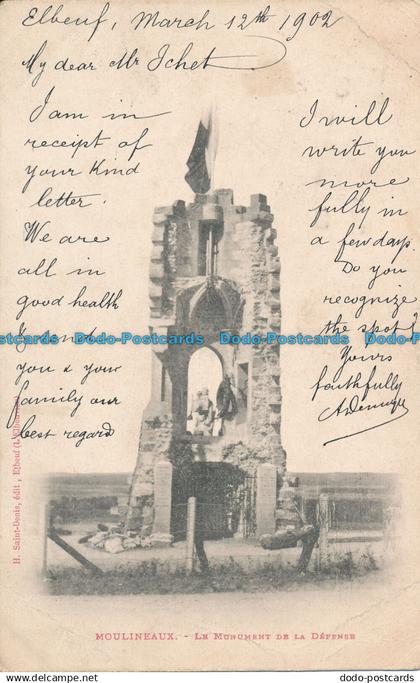 Elbeuf, March 12th 1902
My dear Mr Ichet
I am in
receipt of
your Kind
letter.
We are
all in
good health
I send
you & your
family our
best regard
I will
write you
more
fully in
a few days.
Do you
recognize
the spot?
Yours
faithfully
Dodo-Postcards Dodo-Postcards Dodo-Postcards Dodo-Postcards
H. Saint-Denis, édit., Elbeuf
MOULINEAUX. - LE MONUMENT DE LA DÉFENSE
dodo-postcards
dodo-postcards.com